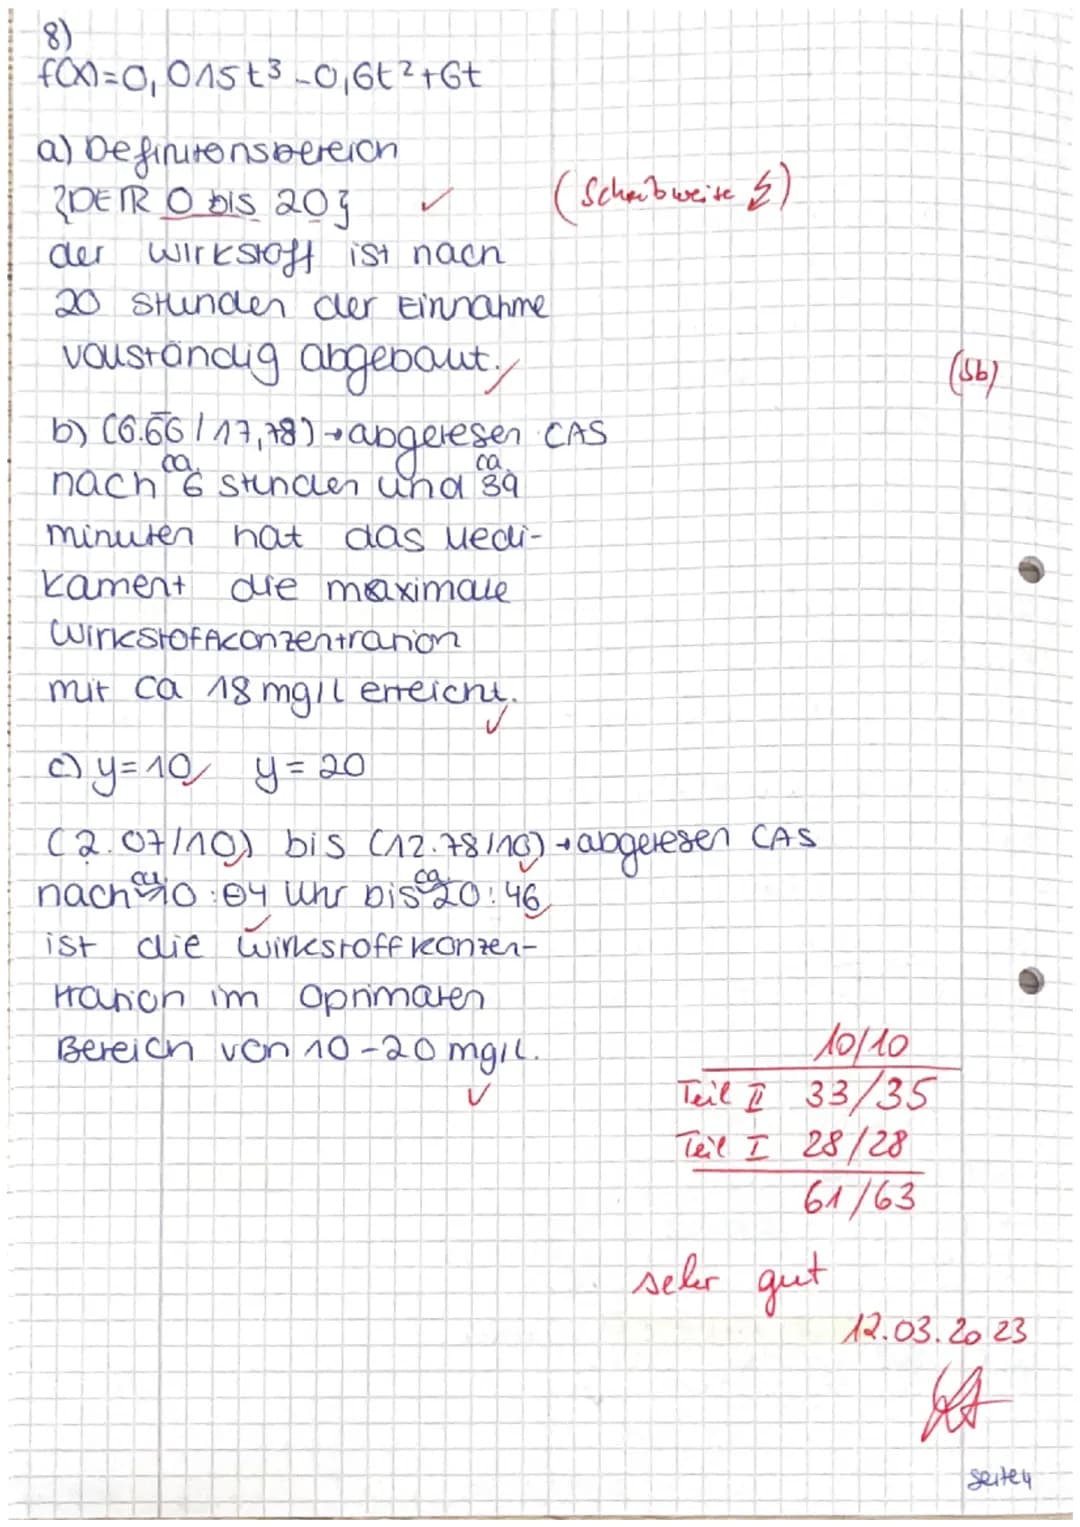 8)
f(x)=0,015t³-0,6t²+6t
a) Definitonsbereich
{DEℝ 0 bis 20} ✓ (Schreibweise ↯)
der Wirkstoff ist nach
20 Stunden der Einnahme
vollständig abgebaut. ✓
(5b)
b) (6.66̅/17,78)→abgelesen CAS
nach ca. 6 Stunden und ca. 39
minuten hat das Medi-
kament die maximale
Wirkstoffkonzentration
mit ca 18 mg/l erreicht. ✓
c) y=10 ✓ y=20
(2.07/10) bis (12.78/10)→abgelesen CAS
nach ca. 10:04 Uhr bis ca. 20:46
ist die Wirkstoffkonzen-
tration im Optimalen
Bereich von 10-20 mg/L. ✓
10/10
Teil II 33/35
Teil I 28/28
61/63
sehr gut
12.03.2023
Seite4